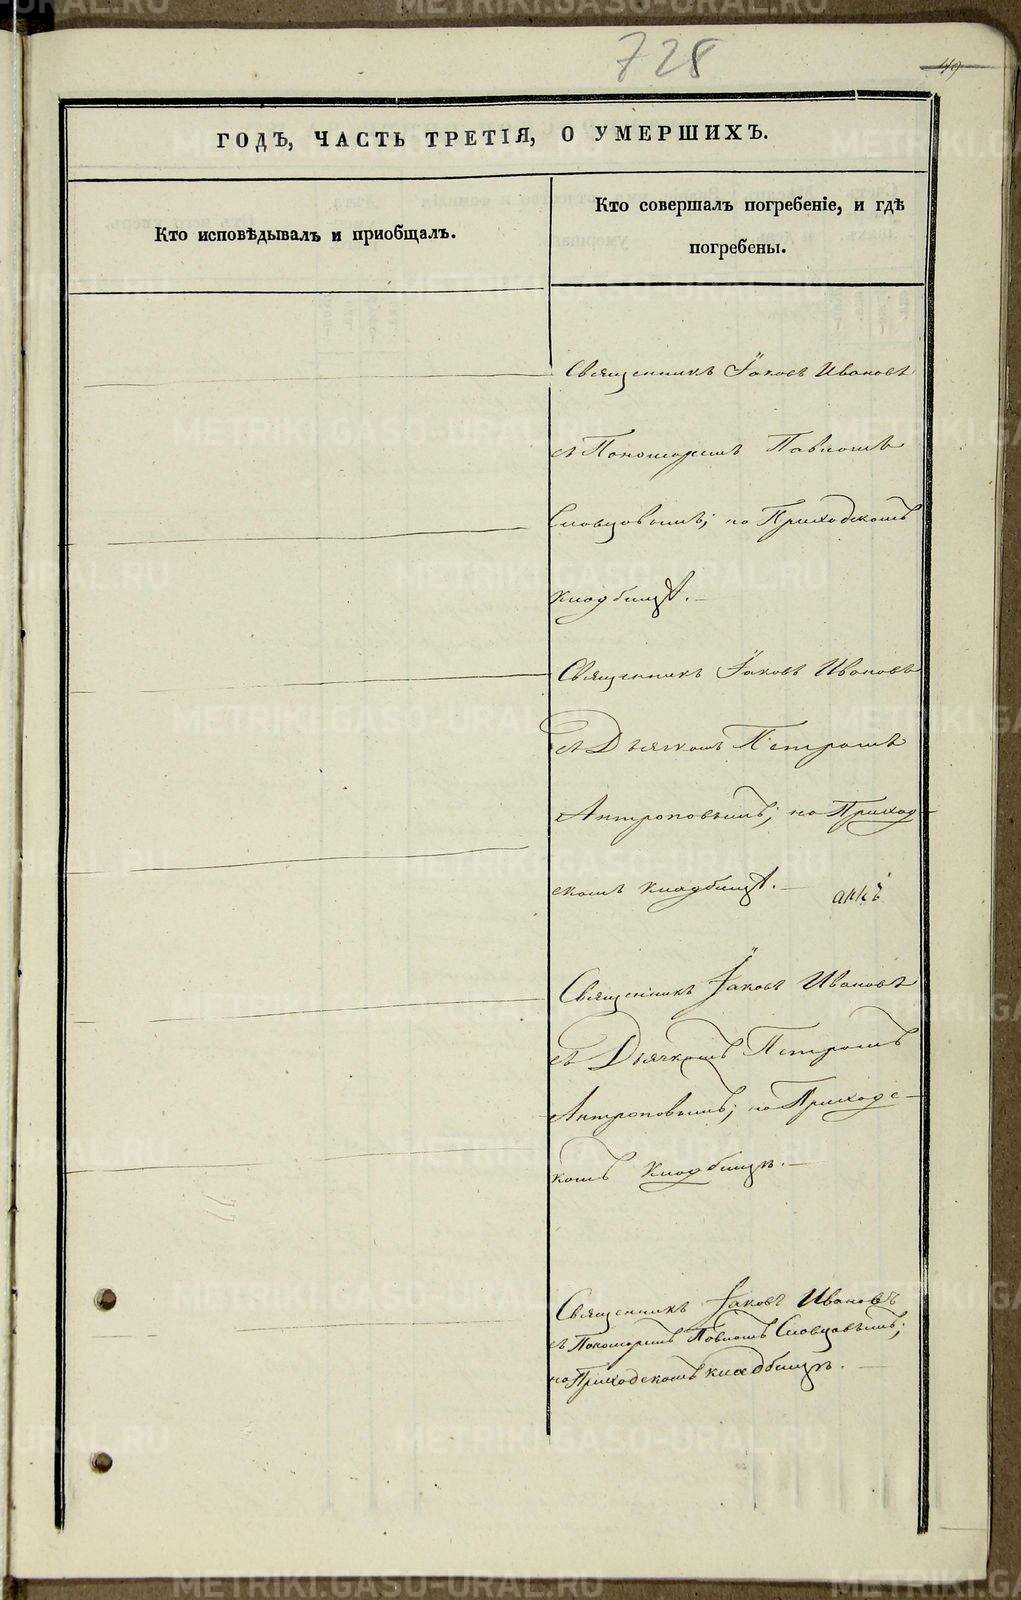 728
49
ГОДЪ, ЧАСТЬ ТРЕТІЯ, О УМЕРШИХЪ.
Кто исповѣдывалъ и пріобщалъ.
Кто совершалъ погребеніе, и гдѣ
погребены.
Священникъ Іаковъ Ивановъ
съ Пономаремъ Павломъ
Словцовымъ; на Приходскомъ
кладбищѣ.
Священникъ Іаковъ Ивановъ
съ Дьячкомъ Петромъ
Антроповымъ; на Приход-
скомъ кладбищѣ.
Священникъ Іаковъ Ивановъ
съ Дьячкомъ Петромъ
Антроповымъ; на Приходс-
комъ кладбищѣ.
Священникъ Іаковъ Ивановъ
съ Пономаремъ Павломъ Словцовымъ;
на Приходскомъ кладбищѣ.
METRIKI.GASO-URAL.RU